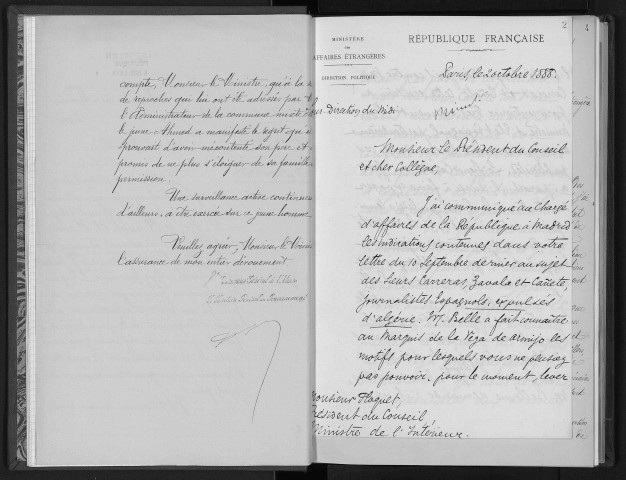 compte, Monsieur le Ministre, qu'à la
de reproches qui lui ont été adressés par
l'Administrateur de la commune mixte
le jeune Ahmed a manifesté le regret qu'il
éprouvait d'avoir mécontenté son père et
promis de ne plus s'éloigner de sa famille
permission.
Une surveillance active continuera
d'ailleurs, à être exercée sur ce jeune homme
Veuillez agréer, Monsieur le Ministre
l'assurance de mon entier dévouement
2
MINISTÈRE
DES
AFFAIRES ÉTRANGÈRES
DIRECTION POLITIQUE
RÉPUBLIQUE FRANÇAISE
Paris, le 2 octobre 1888.
Direction du Midi
Monsieur le Président du Conseil
et cher Collègue,
J'ai communiqué au Chargé
d'affaires de la République à Madrid
les indications contenues dans votre
lettre du 10 Septembre dernier au sujet
des Sieurs Carreras, Zavala et Cañete,
journalistes Espagnols, expulsés
d'algérie. M. Belle a fait connaître
au Marquis de la Vega de armijo les
motifs pour lesquels vous ne pensiez
pas pouvoir, pour le moment, lever
Monsieur Floquet,
Président du Conseil,
Ministre de l'Intérieur.